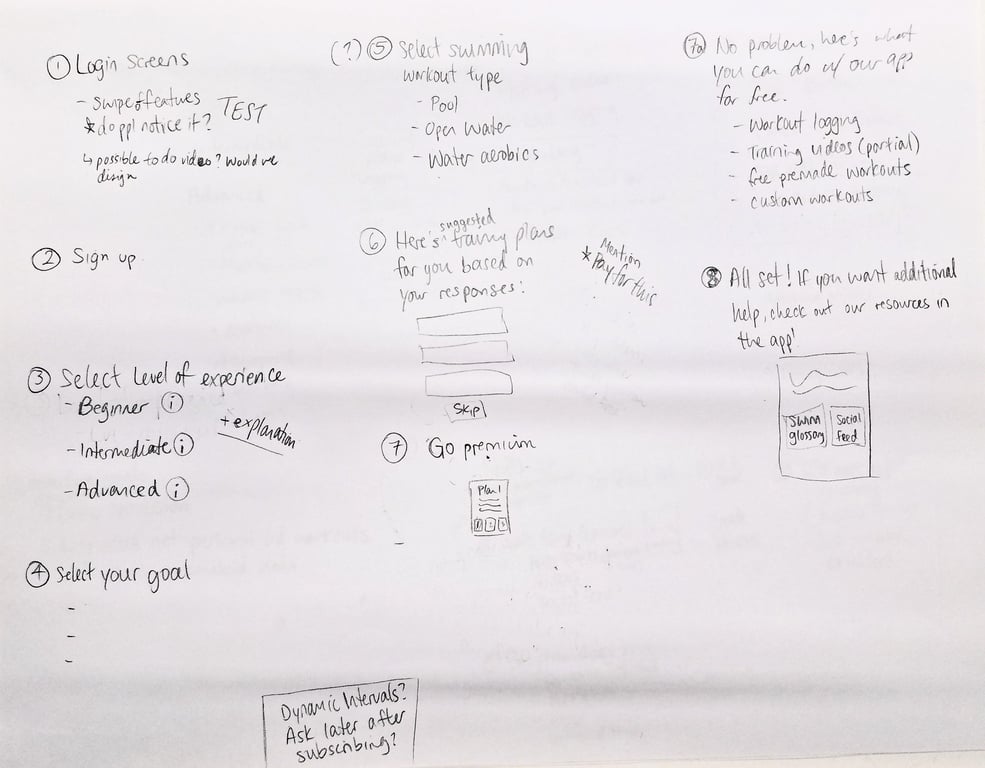 ① Login Screens
- swipe of features
* do ppl notice it? TEST
↳ possible to do video? would ve
design
② Sign up
③ Select Level of experience
- Beginner ⓘ
+ explanation
- Intermediate ⓘ
- Advanced ⓘ
④ Select your goal
-
-
-
Dynamic Intervals?
Ask later after
subscribing?
(?) ⑤ Select swimming
workout type
- Pool
- Open Water
- Water aerobics
⑥ Here's suggested training plans
for you based on
your responses:
Mention
* Pay for this
Skip
⑦ Go premium
Plan 1
-
⑦a No problem, here's what
you can do w/ our app
for free.
- Workout logging
- Training videos (partial)
- free premade workouts
- custom workouts
⑧ All set! If you want additional
help, check out our resources in
the app!
Swim
glossary
Social
Feed